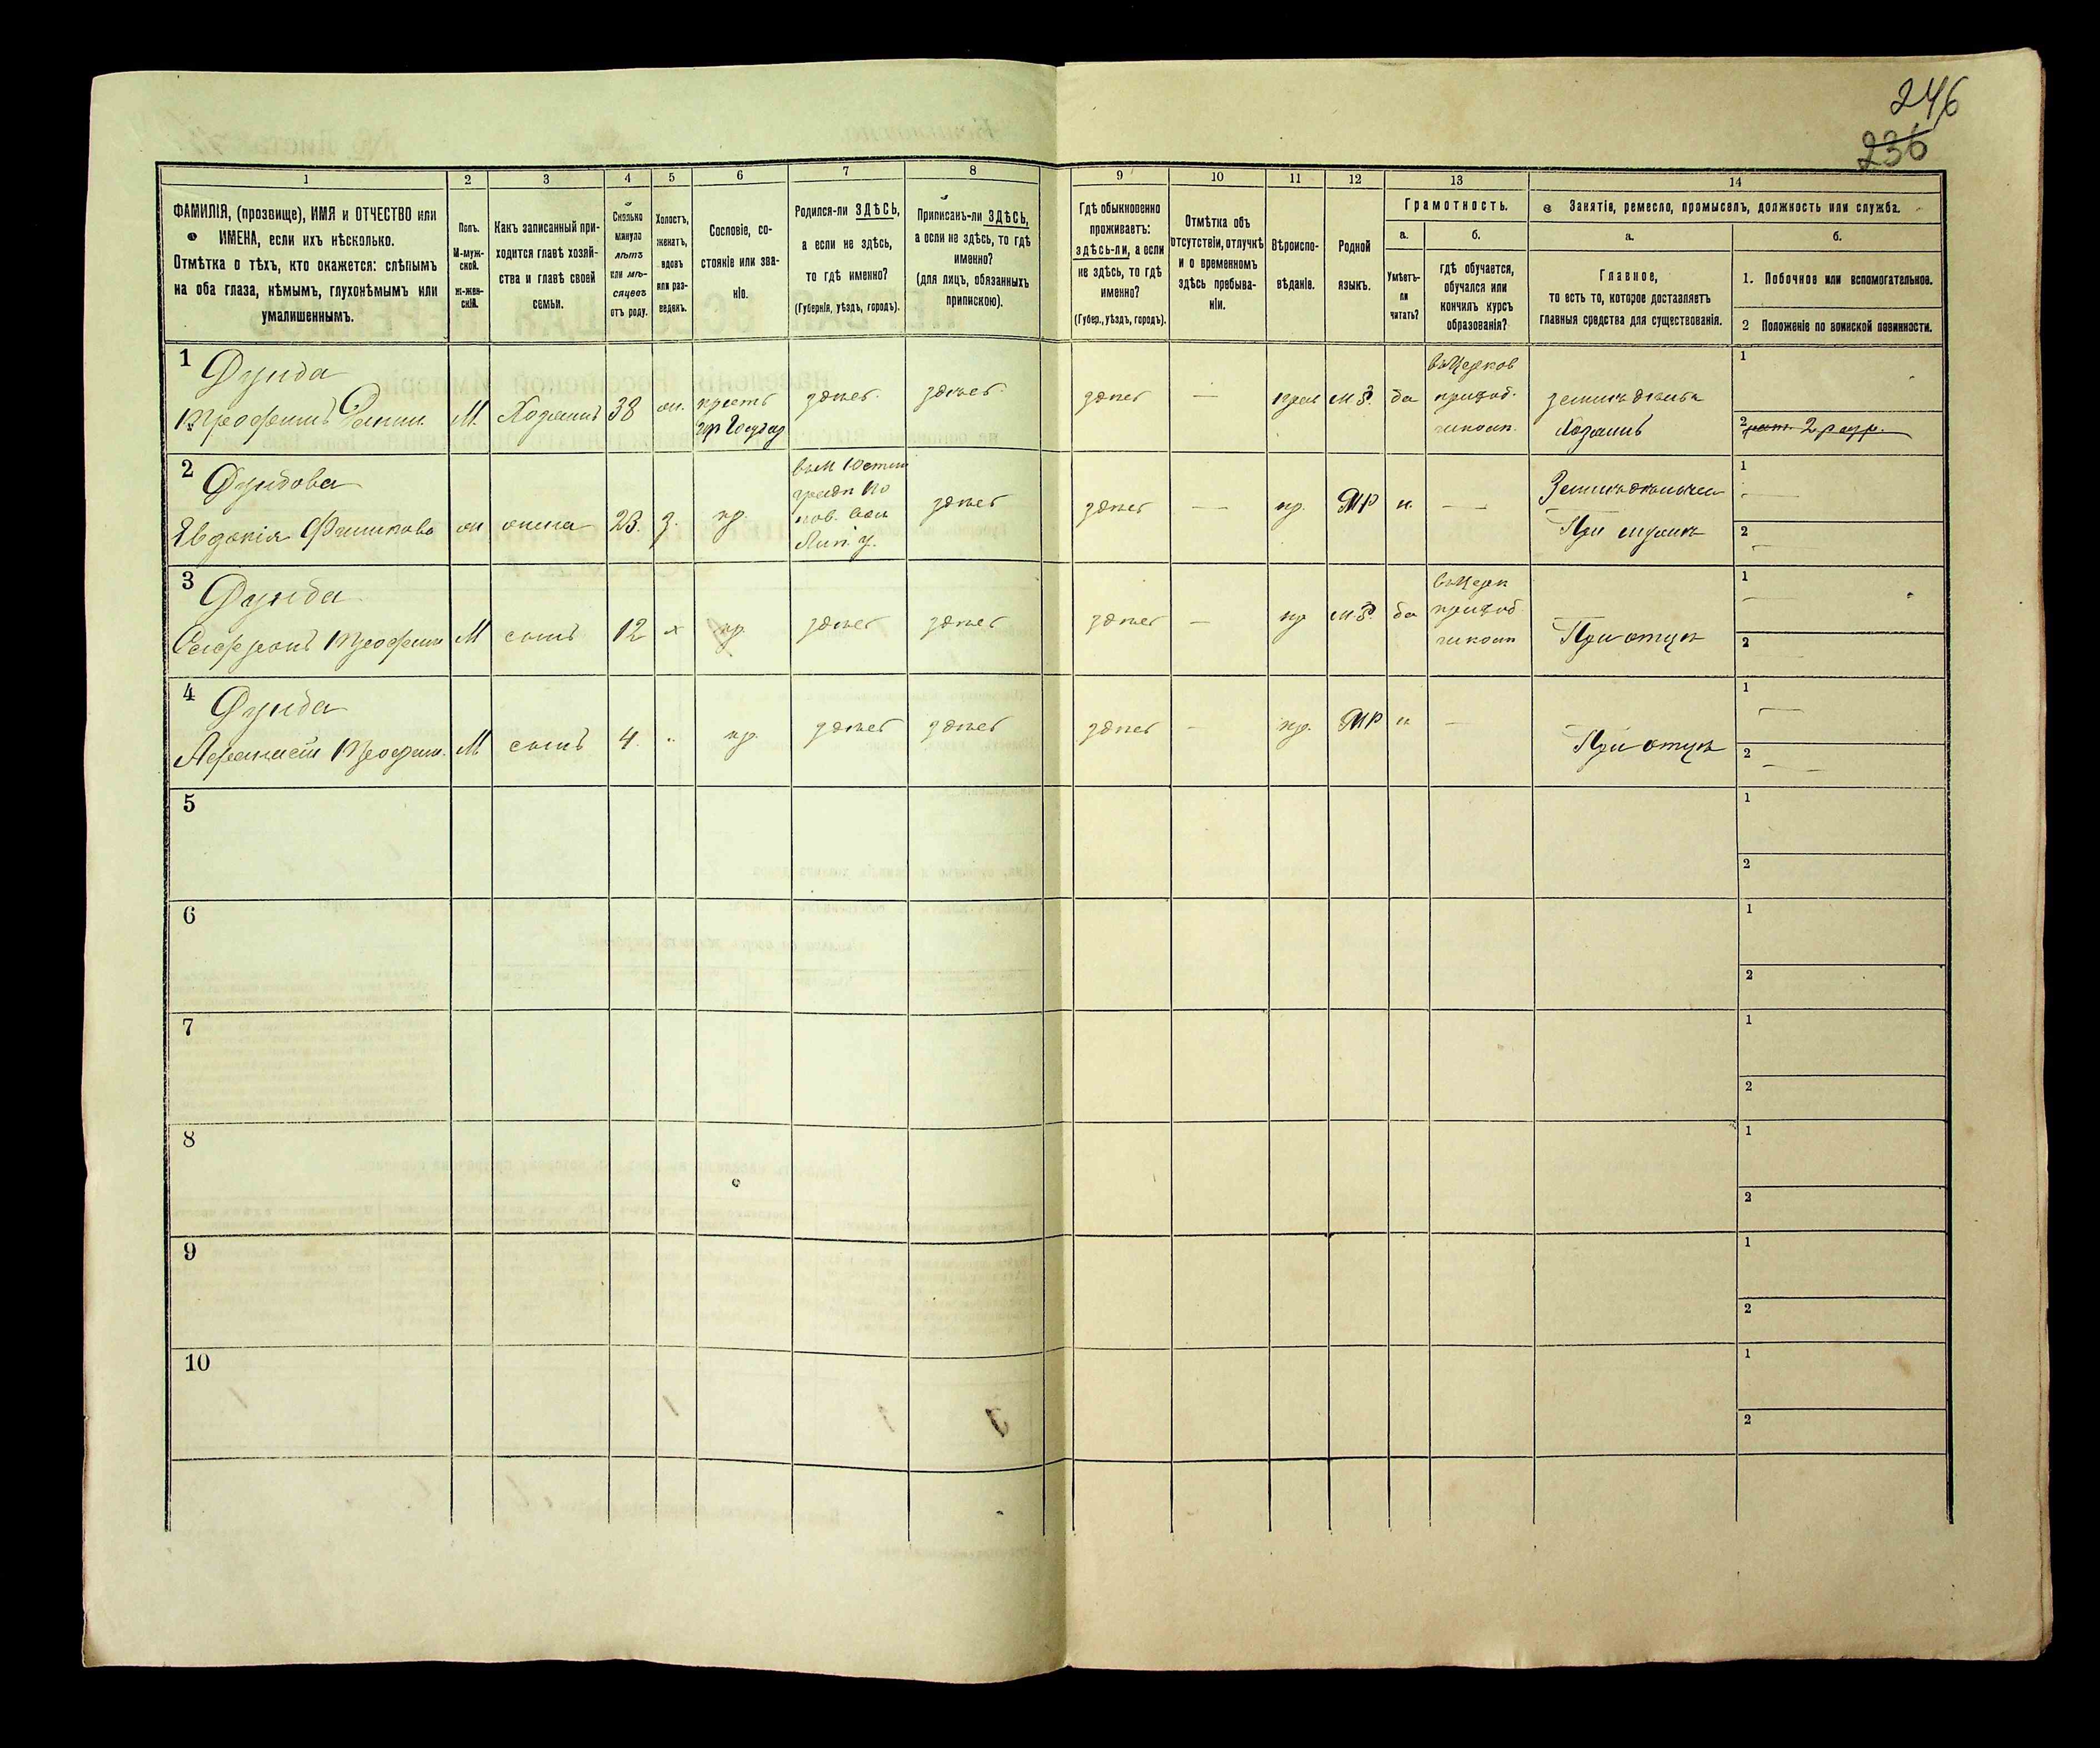 246
236
1
2
3
4
5
6
7
8
9
10
11
12
13
14
ФАМИЛІЯ, (прозвище), ИМЯ и ОТЧЕСТВО или
ИМЕНА, если ихъ нѣсколько.
Отмѣтка о тѣхъ, кто окажется: слѣпымъ
на оба глаза, нѣмымъ, глухонѣмымъ или
умалишеннымъ.
Полъ.
М-муж-
ской.
ж-жен-
скій.
Какъ записанный при-
ходится главѣ хозяй-
ства и главѣ своей
семьи.
Сколько
минуло
лѣтъ
или мѣ-
сяцевъ
отъ роду.
Холостъ,
женатъ,
вдовъ
или раз-
веденъ.
Сословіе, со-
стояніе или зва-
ніе.
Родился-ли ЗДѢСЬ,
а если не здѣсь,
то гдѣ именно?
(Губернія, уѣздъ, городъ).
Приписанъ-ли ЗДѢСЬ,
а если не здѣсь, то гдѣ
именно?
(для лицъ, обязанныхъ
припискою).
Гдѣ обыкновенно
проживаетъ:
здѣсь-ли, а если
не здѣсь, то гдѣ
именно?
(Губер., уѣздъ, городъ).
Отмѣтка объ
отсутствіи, отлучкѣ
и о временномъ
здѣсь пребыва-
ніи.
Вѣроиспо-
вѣданіе.
Родной
языкъ.
Грамотность.
а.
Умѣетъ-
ли
читать?
б.
гдѣ обучается,
обучался или
кончилъ курсъ
образованія?
Занятія, ремесло, промыселъ, должность или служба.
а.
Главное,
то есть то, которое доставляетъ
главныя средства для существованія.
б.
1. Побочное или вспомогательное.
2 Положеніе по воинской повинности.
1
Дзюба
М.
Хозяинъ
38
жен.
крест.
здѣсь
здѣсь
здѣсь
—
прав
м.р.
да
въ Церков
приход.
школ.
земледѣлец
Хозяинъ
1
2 рат. 2 разр.
2
Дзюбова
Евдокія
ж
жена
23
з.
кр.
здѣсь
здѣсь
—
кр.
МР
н.
—
Земледѣлие
При мужѣ
1 —
2 —
3
Дзюба
М
сынъ
12
х
кр.
здѣсь
здѣсь
здѣсь
—
пр
м.р.
да
въ Церк
приход
школ
При отцѣ
1 —
2 —
4
Дзюба
Афанасій Трофим.
М
сынъ
4
кр.
здѣсь
здѣсь
здѣсь
-
пр.
МР
н
—
При отцѣ
1 —
2 —
5
1
2
6
1
2
7
1
2
8
1
2
9
1
2
10
1
2